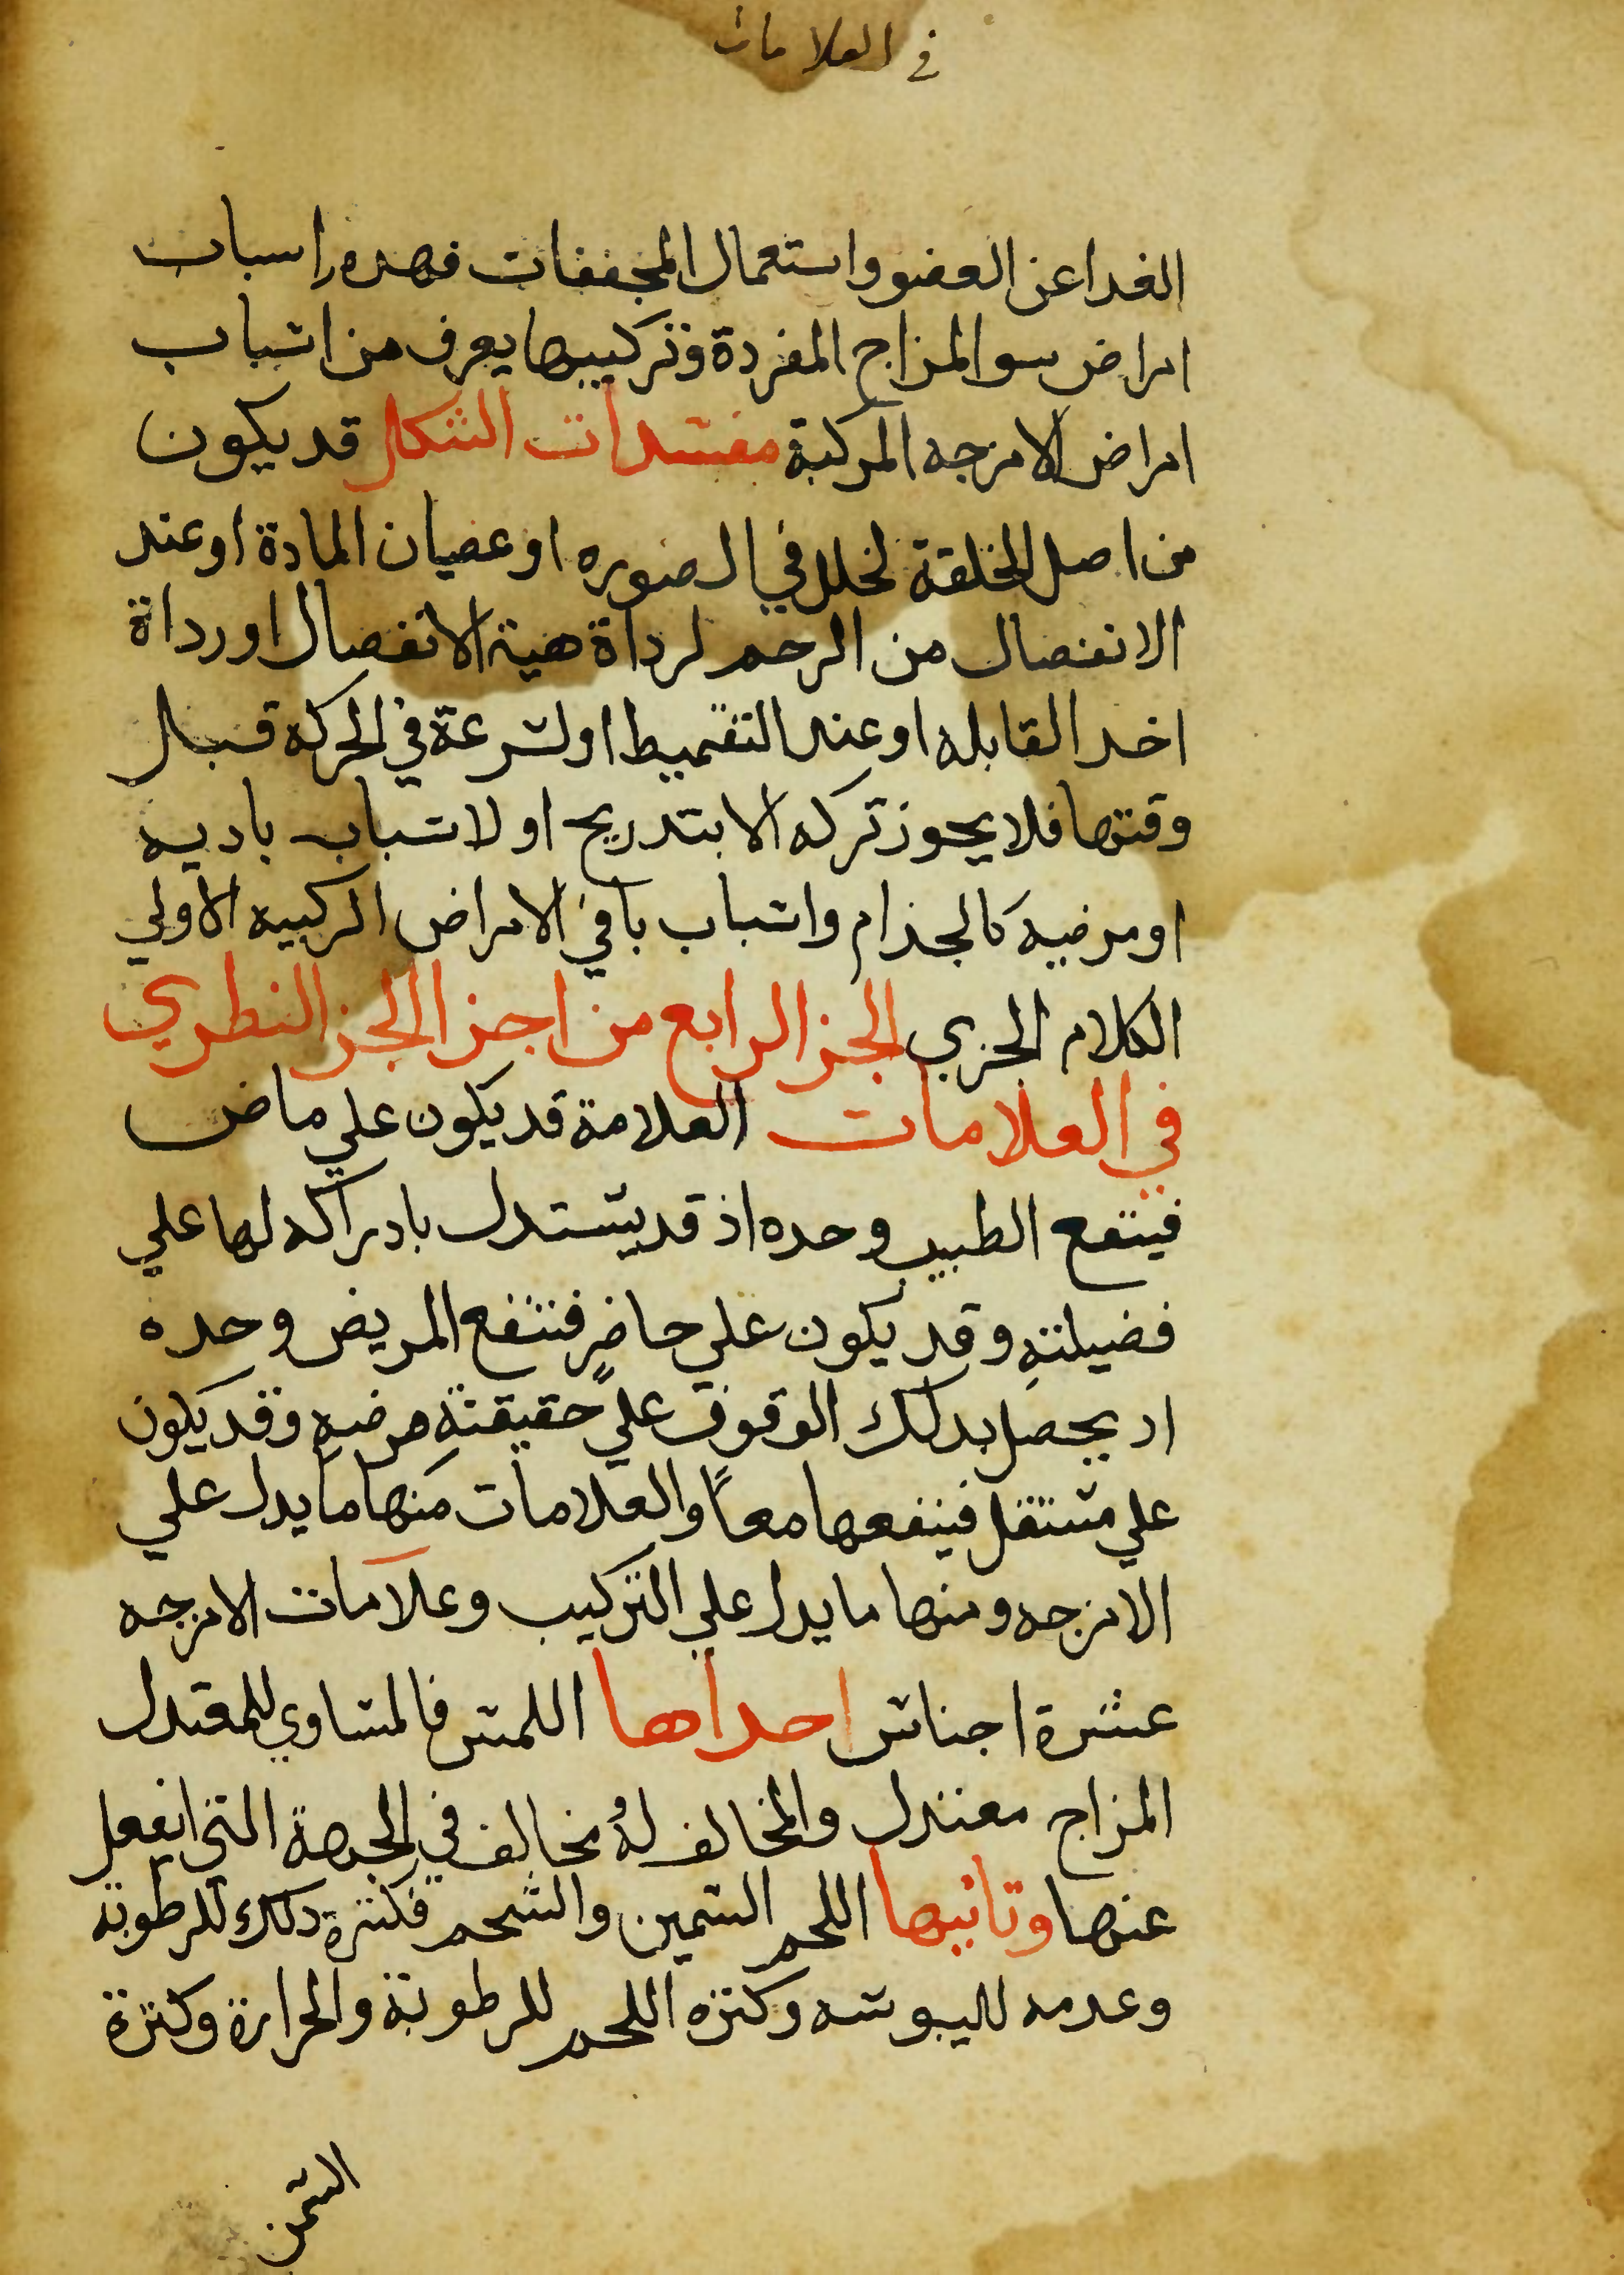 في العلامات
الغدا عن العضو واستعمال المجففات فهده اسباب
امراض سو المزاج المفردة وتركيبها يعرف من اسباب
امراض الامزجه المركبة مفسدات الشكل قد يكون
من اصل الخلقة لخلل في الصوره او عصيان المادة او عند
الانفصال من الرحم لرداة هية الانفصال او رداة
اخد القابله او عند التقميط او لسرعة في الحركة قبل
وقتها فلا يجوز تركه الا بتدريج او لاسباب باديه
او مرضية كالجذام واسباب باقي الامراض الركبيه الاولي
الكلام الجزي الجز الرابع من اجزا الجز النطري
في العلامات العلامة قد يكون علي ماض
فينتفع الطبيب وحده اذ قد يستدل بادراكه لها علي
فضيلته وقد يكون علي حاضر فنتفع المريض وحده
اد يحصل بدلك الوقوف علي حقيقة مرضه وقد يكون
علي مستقل فينفعها معاً والعلامات منها ما يدل علي
الامزجه ومنها ما يدل علي التركيب وعلامات الامزجه
عشرة اجناس احداها اللمس فالمساوي للمعتدل
المزاج معتدل والمخالف لهُ مخالف في الجهة التي انفعل
عنها وتانيها اللحم السمين والشحم فكثرة دلك للرطوبة
وعدمه لليبوسه وكثره اللحم للرطوبة والحرارة وكثرة
السمن